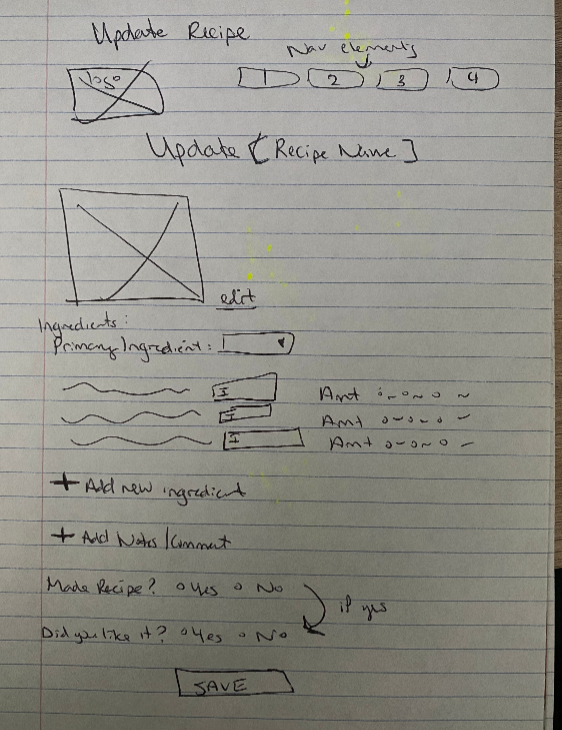 Update Recipe
Nav elements
logo 1 2 3 4
Update [Recipe Name]
edit
Ingredients:
Primary Ingredient:
I Amt
I Amt
I Amt
+ Add new ingredient
+ Add Notes/Comment
Made Recipe? o Yes o No
if yes
Did you like it? o Yes o No
SAVE